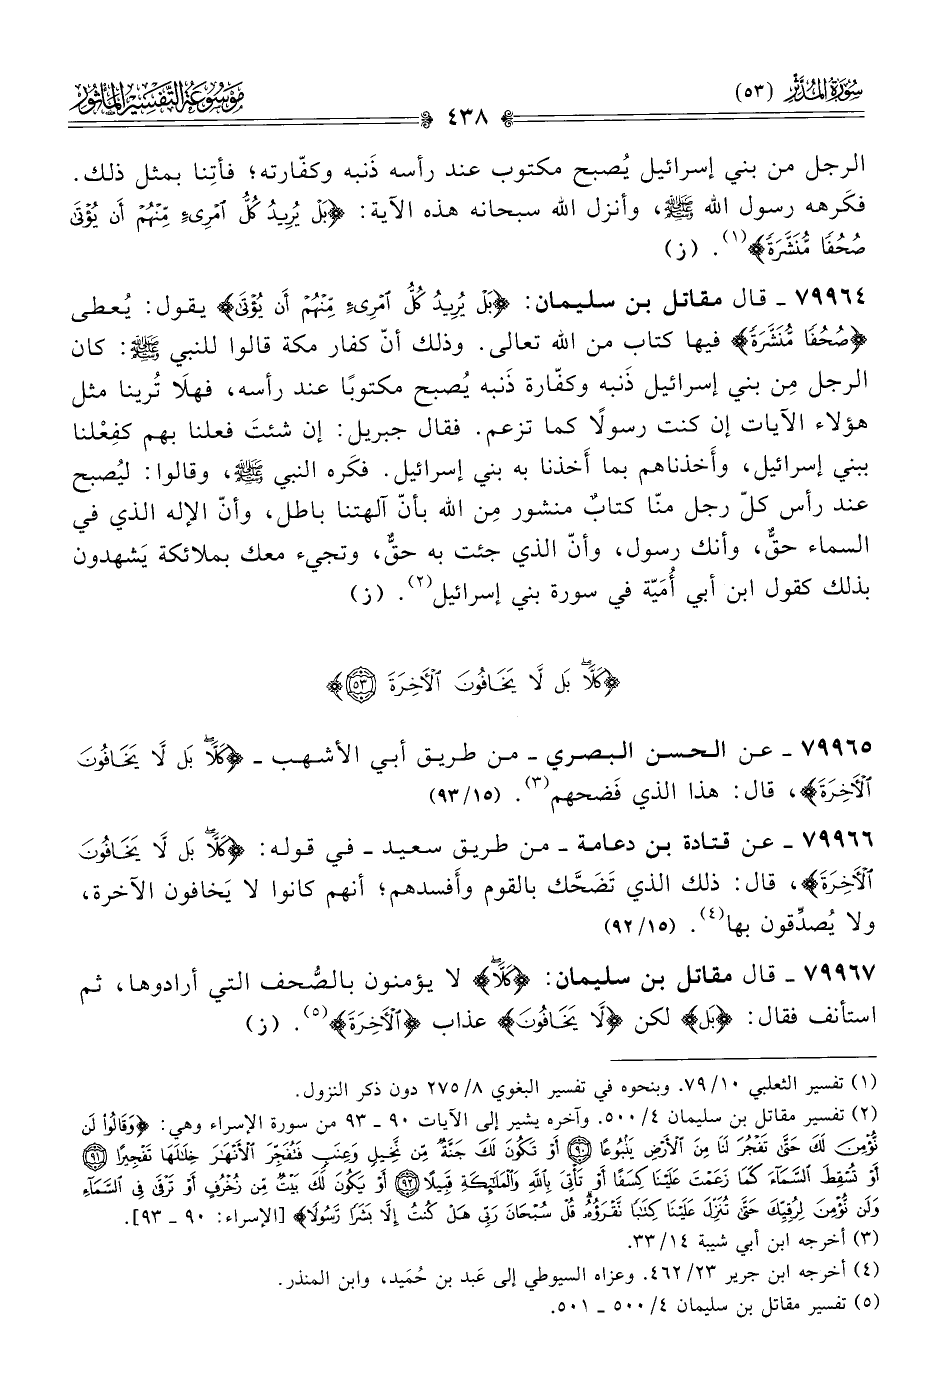 سُورَةُ المُدَّثِّر (٥٣)
٤٣٨
مَوْسُوعَةُ التَّفْسِيرِ المَأْثُور
الرجل من بني إسرائيل يُصبح مكتوب عند رأسه ذَنبه وكفّارته؛ فأتِنا بمثل ذلك.
فكَرهه رسول الله ﷺ، وأنزل الله سبحانه هذه الآية: ﴿بَلْ يُرِيدُ كُلُّ ٱمْرِئٍ مِّنْهُمْ أَن يُؤْتَىٰ
صُحُفًا مُّنَشَّرَةً﴾(١). (ز)
٧٩٩٦٤ ـ قال مقاتل بن سليمان: ﴿بَلْ يُرِيدُ كُلُّ ٱمْرِئٍ مِّنْهُمْ أَن يُؤْتَىٰ﴾ يقول: يُعطى
﴿صُحُفًا مُّنَشَّرَةً﴾ فيها كتاب من الله تعالى. وذلك أنّ كفار مكة قالوا للنبي ﷺ: كان
الرجل مِن بني إسرائيل ذَنبه وكفّارة ذَنبه يُصبح مكتوبًا عند رأسه، فهلَا تُرينا مثل
هؤلاء الآيات إن كنت رسولًا كما تزعم. فقال جبريل: إن شئتَ فعلنا بهم كفِعْلنا
ببني إسرائيل، وأَخذناهم بما أَخذنا به بني إسرائيل. فكَره النبي ﷺ، وقالوا: ليُصبح
عند رأس كلّ رجل منّا كتابٌ منشور مِن الله بأنّ آلهتنا باطل، وأنّ الإله الذي في
السماء حقٌّ، وأنك رسول، وأنّ الذي جئت به حقٌّ، وتجيء معك بملائكة يَشهدون
بذلك كقول ابن أبي أُمَيّة في سورة بني إسرائيل(٢). (ز)
﴿كَلَّا ۖ بَل لَّا يَخَافُونَ ٱلْآخِرَةَ ٥٣﴾
٧٩٩٦٥ ـ عن الحسن البصري ـ من طريق أبي الأشهب ـ ﴿كَلَّا ۖ بَل لَّا يَخَافُونَ
ٱلْآخِرَةَ﴾، قال: هذا الذي فَضحهم(٣). (٩٣/١٥)
٧٩٩٦٦ ـ عن قتادة بن دعامة ـ من طريق سعيد ـ في قوله: ﴿كَلَّا ۖ بَل لَّا يَخَافُونَ
ٱلْآخِرَةَ﴾، قال: ذلك الذي تَضَحَّك بالقوم وأَفسدهم؛ أنهم كانوا لا يَخافون الآخرة،
ولا يُصدِّقون بها(٤). (٩٢/١٥)
٧٩٩٦٧ ـ قال مقاتل بن سليمان: ﴿كَلَّا ۖ﴾ لا يؤمنون بالصُّحف التي أرادوها، ثم
استأنف فقال: ﴿بَل﴾ لكن ﴿لَّا يَخَافُونَ﴾ عذاب ﴿ٱلْآخِرَةَ﴾(٥). (ز)
(١) تفسير الثعلبي ٧٩/١٠. وبنحوه في تفسير البغوي ٢٧٥/٨ دون ذكر النزول.
(٢) تفسير مقاتل بن سليمان ٥٠٠/٤. وآخره يشير إلى الآيات ٩٠ ـ ٩٣ من سورة الإسراء وهي: ﴿وَقَالُوا۟ لَن
نُّؤْمِنَ لَكَ حَتَّىٰ تَفْجُرَ لَنَا مِنَ ٱلْأَرْضِ يَنۢبُوعًا ٩٠ أَوْ تَكُونَ لَكَ جَنَّةٌ مِّن نَّخِيلٍ وَعِنَبٍ فَتُفَجِّرَ ٱلْأَنْهَٰرَ خِلَٰلَهَا تَفْجِيرًا ٩١
أَوْ تُسْقِطَ ٱلسَّمَآءَ كَمَا زَعَمْتَ عَلَيْنَا كِسَفًا أَوْ تَأْتِىَ بِٱللَّهِ وَٱلْمَلَٰٓئِكَةِ قَبِيلًا ٩٢ أَوْ يَكُونَ لَكَ بَيْتٌ مِّن زُخْرُفٍ أَوْ تَرْقَىٰ فِى ٱلسَّمَآءِ
وَلَن نُّؤْمِنَ لِرُقِيِّكَ حَتَّىٰ تُنَزِّلَ عَلَيْنَا كِتَٰبًا نَّقْرَؤُهُۥ قُلْ سُبْحَانَ رَبِّى هَلْ كُنتُ إِلَّا بَشَرًا رَّسُولًا﴾ [الإسراء: ٩٠ ـ ٩٣].
(٣) أخرجه ابن أبي شيبة ٣٣/١٤.
(٤) أخرجه ابن جرير ٤٦٢/٢٣. وعزاه السيوطي إلى عَبد بن حُمَيد، وابن المنذر.
(٥) تفسير مقاتل بن سليمان ٥٠٠/٤ ـ ٥٠١.